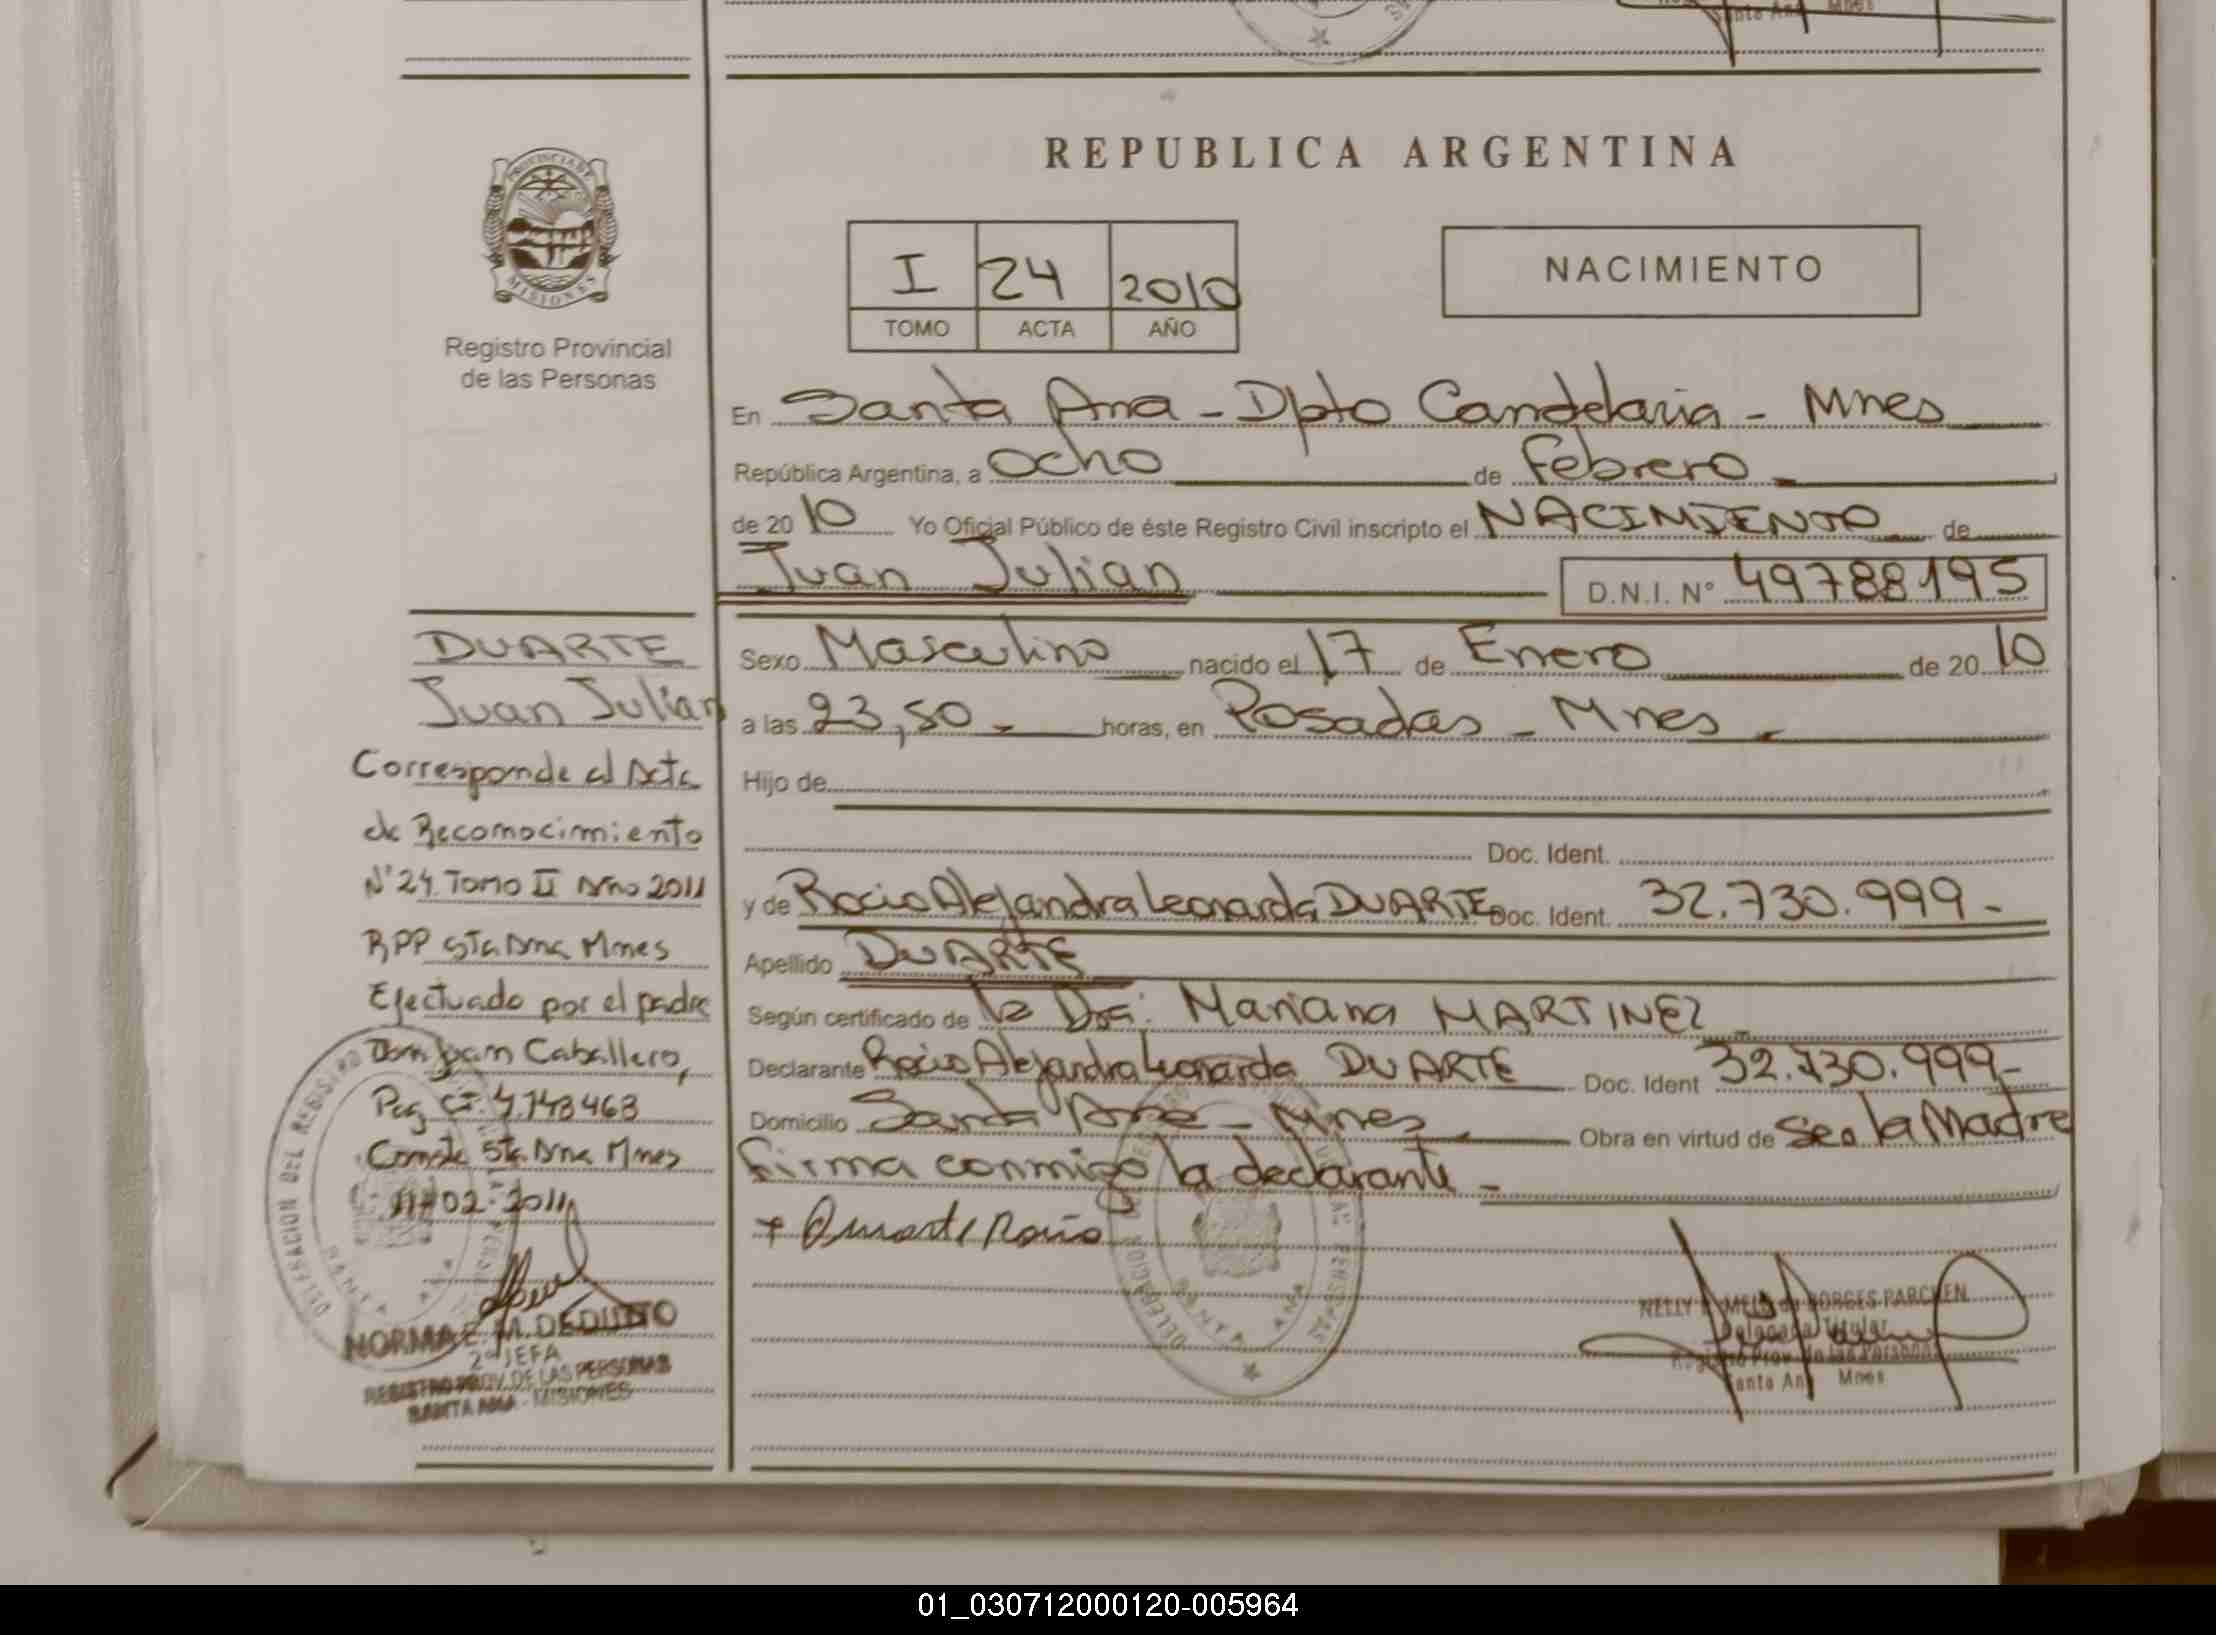 Santa Ana Mnes
REPUBLICA ARGENTINA
PROVINCIA DE
MISIONES
Registro Provincial
de las Personas
I 24 2010
TOMO ACTA AÑO
NACIMIENTO
En Santa Ana - Dpto Candelaria - Mnes
República Argentina, a ocho de Febrero
de 2010 Yo Oficial Público de éste Registro Civil inscripto el NACIMIENTO de
Juan Julian D.N.I. Nº 49788195
Sexo Masculino nacido el 17 de Enero de 2010
a las 23,50 - horas, en Posadas - Mnes -
Hijo de
Doc. Ident.
y de Rocio Alejandra Leonarda DUARTE Doc. Ident. 32.730.999-
Apellido DUARTE
Según certificado de la Dra: Mariana MARTINEZ
Declarante Rocio Alejandra Leonarda DUARTE Doc. Ident 32.730.999-
Domicilio Santa Ana - Mnes - Obra en virtud de Sea la Madre
Firma conmigo la declarante -
+ Duarte Rocio
DUARTE
Juan Julián
Corresponde al Acta
de Reconocimiento
N° 24 Tomo II Año 2011
RPP Sta Ana Mnes
Efectuado por el padre
Don Juan Caballero,
Pag CI. 4.748468
Conste Sta. Ana Mnes
11-02-2011
DELEGACION DEL REGISTRO
SANTA ANA
NORMA E. M. DEDUTTO
2º JEFA
REGISTRO PROV. DE LAS PERSONAS
SANTA ANA - MISIONES
SANTA ANA
NELLY de BORGES PARCHEN
Delegada Titular
Registro Prov. de las Personas
Santa Ana Mnes
01_030712000120-005964